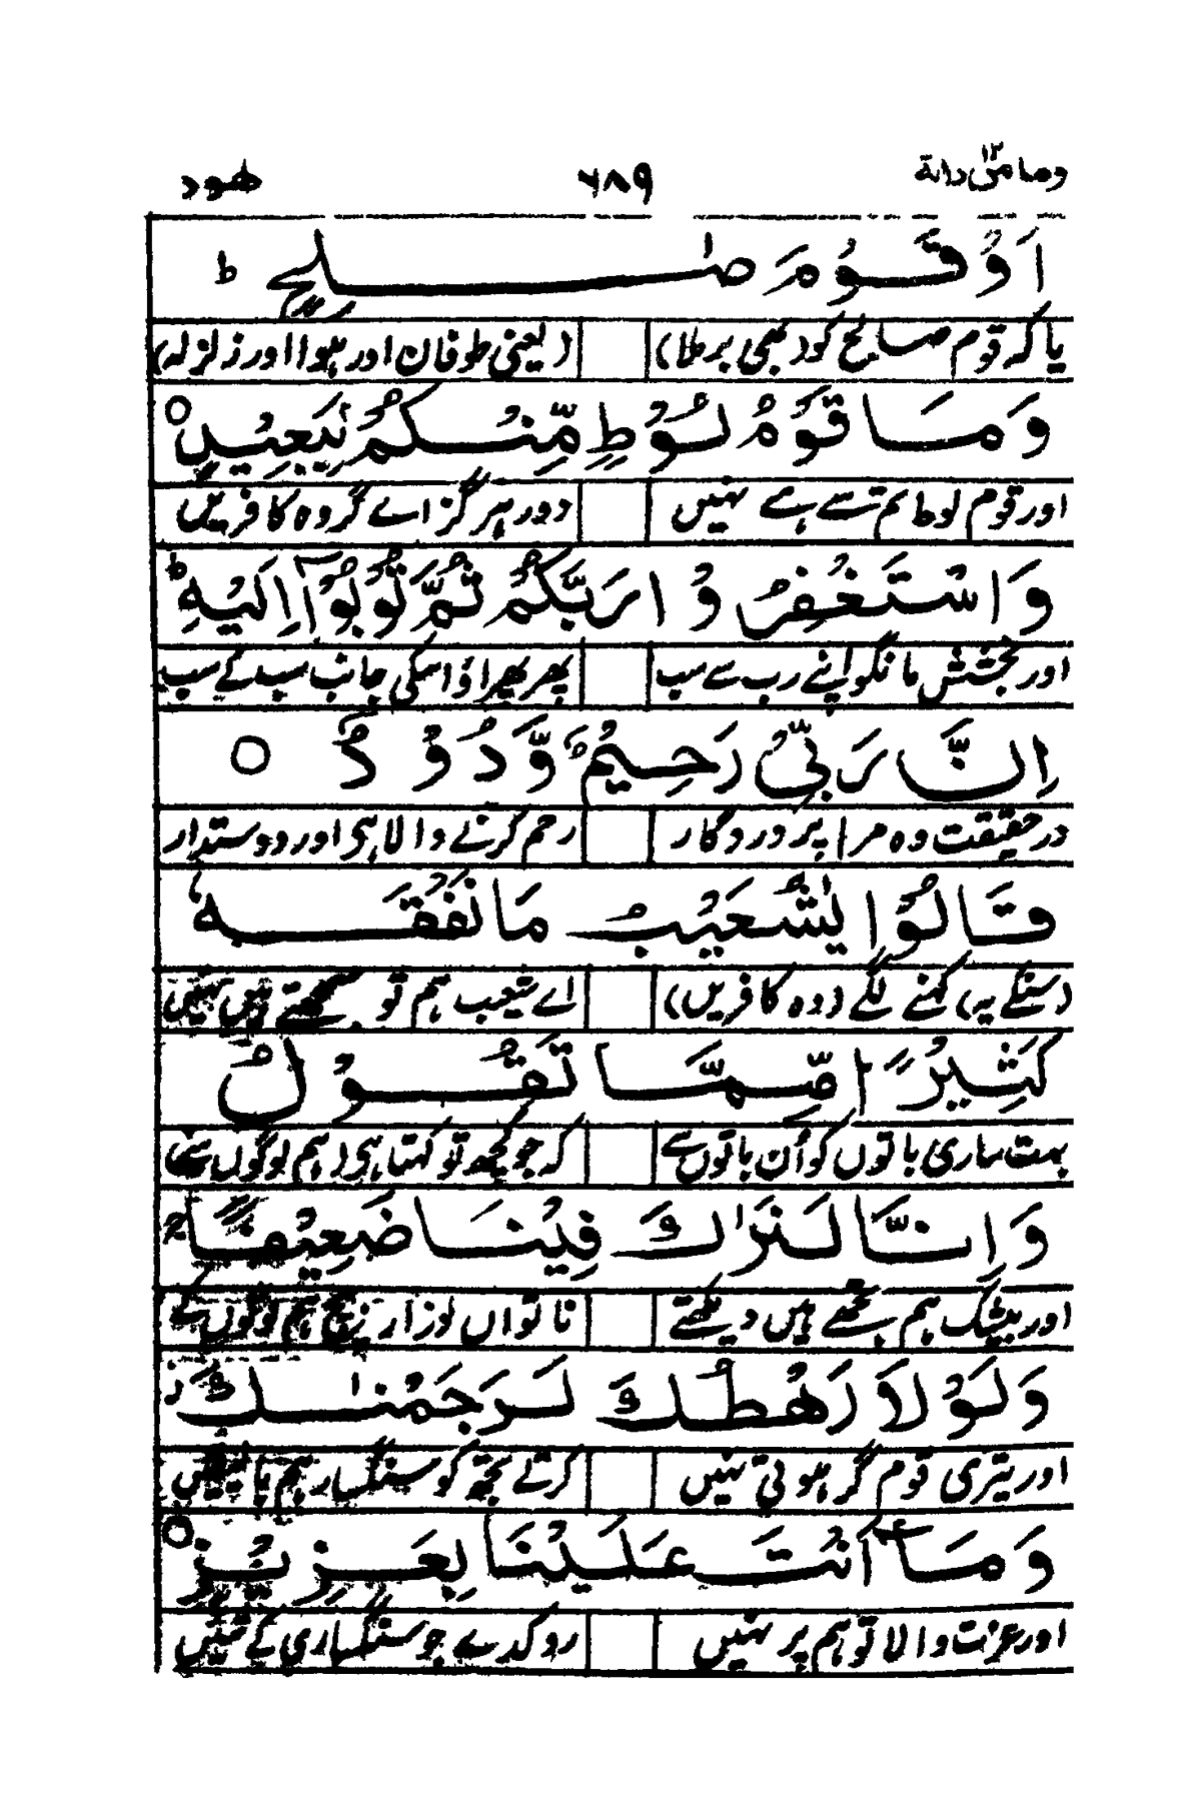 وما من دابة ١٢ ٦٨٩ هود
اَوْ قَوْمَ صٰلِحٍ ط
یا کہ قوم صالح کو (بھی برملا) (یعنی طوفان اور ہوا اور زلزلہ)
وَمَا قَوْمُ لُوْطٍ مِّنْكُمْ بِبَعِيْدٍ ○
اور قوم لوط تم سے ہے نہیں دور ہرگز اے گروہ کافریں
وَاسْتَغْفِرُوْا رَبَّكُمْ ثُمَّ تُوْبُوْٓا اِلَيْهِ ط
اور بخشش مانگو اپنے رب سے سب پھر پھر آؤ اسکی جانب سب کے سب
اِنَّ رَبِّيْ رَحِيْمٌ وَّدُوْدٌ ○
در حقیقت وہ مرا پروردگار رحم کرنے والا ہی اور دوستدار
قَالُوْا يٰشُعَيْبُ مَا نَفْقَهُ
(سنکے یہ) کہنے لگے (وہ کافریں) اے شعیب ہم تو سمجھتے ہیں نہیں
كَثِيْرًا مِّمَّا تَقُوْلُ
بہت ساری باتوں کو اُن باتوں سے کہ جو کچھ تو کہتا ہی (ہم لوگوں سے)
وَاِنَّا لَنَرٰىكَ فِيْنَا ضَعِيْفًا ج
اور بیشک ہم تجھے ہیں دیکھتے ناتواں و زار بیچ ہم لوگوں کے
وَلَوْلَا رَهْطُكَ لَرَجَمْنٰكَ ز
اور تیری قوم گر ہوتی نہیں کرتے تجھ کو سنگسار ہم بالیقیں
وَمَآ اَنْتَ عَلَيْنَا بِعَزِيْزٍ ○
اور عزت والا تو ہم پر نہیں روکدے جو سنگساری کے تئیں